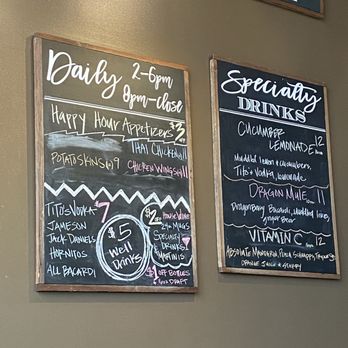 Daily 2-6pm
8pm-close
Happy Hour Appetizers $3 off
THAI CHICKEN 11
POTATO SKINS 9
CHICKEN WINGS 11
TITO'S VODKA $7
JAMESON
JACK DANIELS
HORNITOS
ALL BACARDI
$5
Well
Drinks
$2 off
House Wine
MUGS
SPECIALTY
DRINKS
MARTINIS
$1 OFF BOTTLES
DRAFT
Specialty
DRINKS
CUCUMBER
LEMONADE 12
Muddled lemon & cucumbers,
Tito's Vodka, lemonade
DRAGON MULE 11
Dragonberry Bacardi, muddled limes,
ginger beer
VITAMIN C 12
ABSOLUTE MANDARIN, PEACH SCHNAPPS,
ORANGE JUICE &